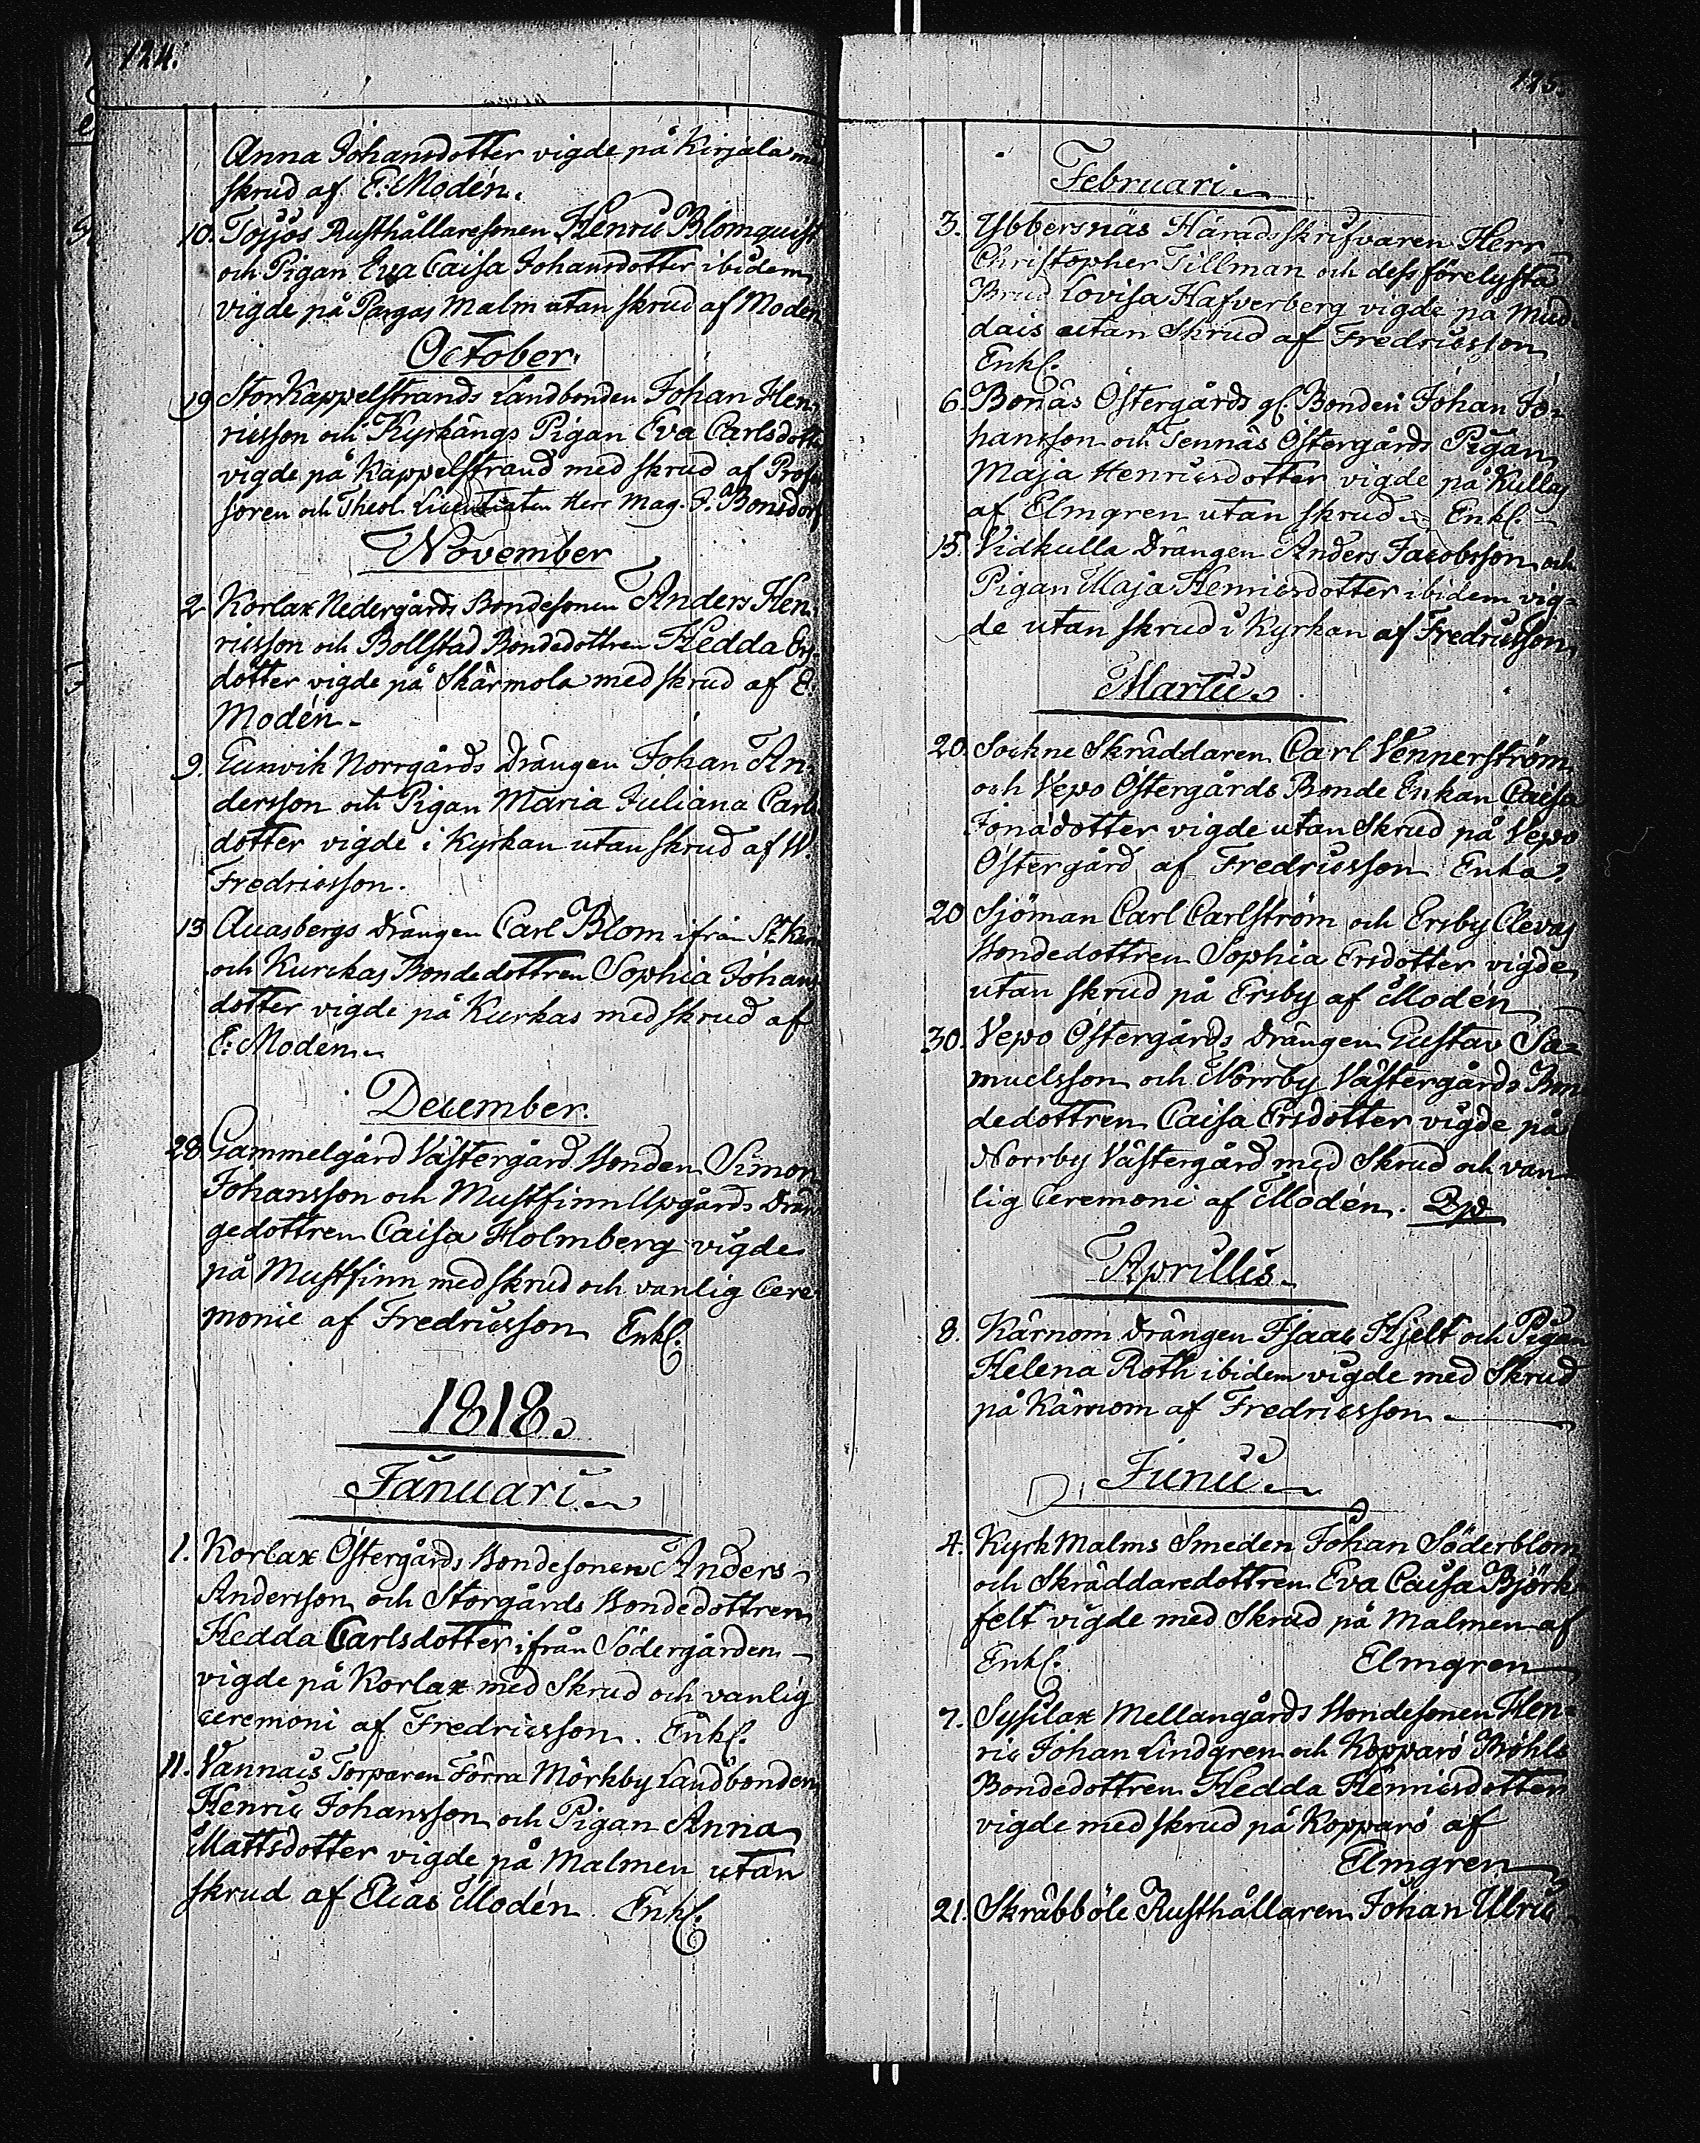 124.
Anna Johansdotter vigde på Kirjala med
skrud af E: Modén.
10. Tojjos Rusthållaresonen Henric Blomquist
och Pigan Eva Caisa Johansdotter ibidem
vigde på Pargas Malm utan skrud af Modén
October.
19 StorKappelstrands Landbonden Johan Hen-
ricsson och Kyrkängs Pigan Eva Carlsdotter
vigde på Kappelstrand med skrud af Profes
soren och Theol. Licentiaten Herr Mag. J. Bonsdorf
November
2 Korlax Nedergårds Bondesonen Anders Hen-
ricsson och Bollstad Bondedottren Hedda Ers-
dotter vigde på Skärmola med skrud af E:
Modén.
9. Gunvik Norrgårds Drängen Johan An-
dersson och Pigan Maria Juliana Carls
dotter vigde i Kyrkan utan skrud af W.
Fredricsson.
13 Auasbergs Drängen Carl Blom ifrån St Kar
och Kurckas Bondedottren Sophia Johans
dotter vigde på Kurkas med skrud af
E: Modén.
December.
28 Gammelgård Västergård Bonden Simon
Johansson och Mustfinn Upgårds Drän
gedottren Caisa Holmberg vigde
på Mustfinn med skrud och vanlig Cere
monie af Fredricsson Enkl.
1818.
Januari.
1. Korlax Östergårds Bondesonen Anders
Andersson och Storgårds Bondedottren
Hedda Carlsdotter ifrån Södergården
vigde på Korlax med Skrud och vanlig
ceremoni af Fredricsson. Enkl.
11. Vannais Torparen Förra Mörkby Landbonden
Henric Johansson och Pigan Anna
Mattsdotter vigde på Malmen utan
skrud af Elias Modén. Enkl.
125.
Februari.
3. Ybbersnäs Häradsskrifvaren Herr
Christopher Tillman och dess förelysta
Brud Lovisa Hafverberg vigde på Mud-
dais utan Skrud af Fredricsson
Enkl.
6. Bonäs Östergårds gl. Bonden Johan Jo-
hansson och Tennäs Östergårds Pigan
Maja Henricsdotter vigde på Kullas
af Elmgren utan skrud. Enkl.
15. Vidkulla Drängen Anders Jacobsson och
Pigan Maja Henricsdotter ibidem vig-
de utan skrud i Kyrkan af Fredricsson
Martii.
20. Sockne Skräddaren Carl Vennerström
och Vepo Östergårds Bonde Enkan Caisa
Jonadotter vigde utan Skrud på Vepo
Östergård af Fredricsson Enka.
20 Sjöman Carl Carlström och Ersby Clevas
Bondedottren Sophia Ersdotter vigde
utan skrud på Ersby af Modén
30. Vepo Östergårds Drängen Gustav Sa-
muelsson och Norrby Västergårds Bon
dedottren Caisa Ersdotter vigde på
Norrby Västergård med Skrud och van
lig Ceremoni af Modén.
Aprillis.
8. Kärnom Drängen Isaac Hjelt och Pigan
Helena Roth ibidem vigde med Skrud
på Kärnom af Fredricsson.
Junii.
4. Kyrk Malms Smeden Johan Söderblom
och Skräddaredottren Eva Caisa Björk
felt vigde med Skrud på Malmen af
Enkl. Elmgren
7. Sysilax Mellangårds Bondesonen Hen-
ric Johan Lindgren och Kopparö Böhls
Bondedottren Hedda Henricsdotter
vigde med skrud på Kopparö af
Elmgren
21. Skräbböle Rusthållaren Johan Ulric